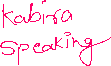 Kabira
Speaking